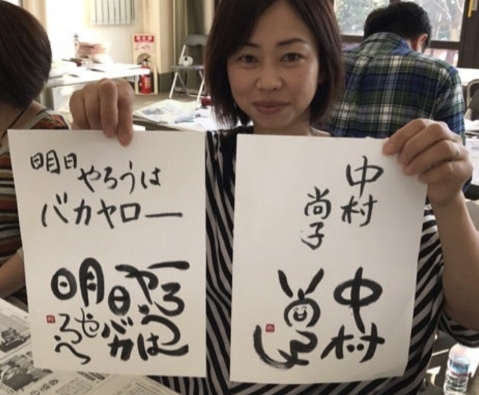 明日
やろうは
バカヤロー
明日
やろうは
バカ
やろう
中村
尚子
中村
尚子